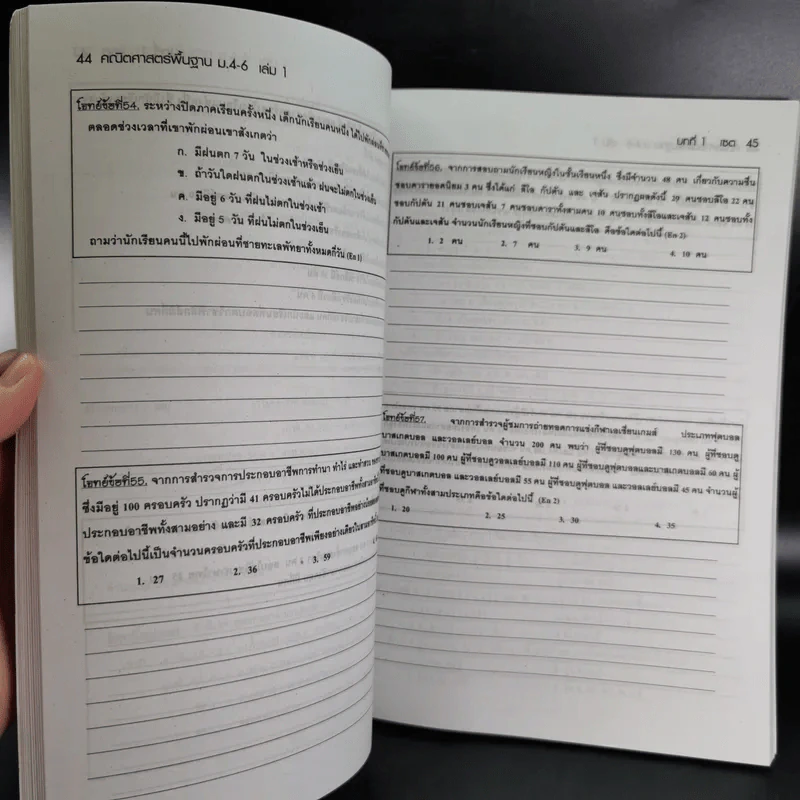 44 คณิตศาสตร์พื้นฐาน ม.4-6 เล่ม 1
โจทย์ข้อที่54. ระหว่างปิดภาคเรียนครั้งหนึ่ง เด็กนักเรียนคนหนึ่ง ได้ไปพักผ่อน
ตลอดช่วงเวลาที่เขาพักผ่อนเขาสังเกตว่า
ก. มีฝนตก 7 วัน ในช่วงเช้าหรือช่วงเย็น
ข. ถ้าวันใดฝนตกในช่วงเช้าแล้ว ฝนจะไม่ตกในช่วงเย็น
ค. มีอยู่ 6 วัน ที่ฝนไม่ตกในช่วงเช้า
ง. มีอยู่ 5 วัน ที่ฝนไม่ตกในช่วงเย็น
ถามว่านักเรียนคนนี้ไปพักผ่อนที่ชายทะเลพัทยาทั้งหมดกี่วัน (En 1)
โจทย์ข้อที่55. จากการสำรวจการประกอบอาชีพการทำนา ทำไร่ และทำสวน
ซึ่งมีอยู่ 100 ครอบครัว ปรากฏว่ามี 41 ครอบครัวไม่ได้ประกอบอาชีพทั้งสาม
ประกอบอาชีพทั้งสามอย่าง และมี 32 ครอบครัว ที่ประกอบอาชีพ
ข้อใดต่อไปนี้เป็นจำนวนครอบครัวที่ประกอบอาชีพเพียงอย่างเดียว
1. 27 2. 36 3. 59
บทที่ 1 เซต 45
โจทย์ข้อที่56. จากการสอบถามนักเรียนหญิงในชั้นเรียนหนึ่ง ซึ่งมีจำนวน 48 คน เกี่ยวกับความชื่น
ชอบดารายอดนิยม 3 คน ซึ่งได้แก่ ลีโอ กัปตัน และ เจสัน ปรากฏผลดังนี้ 29 คนชอบลีโอ 22 คน
ชอบกัปตัน 21 คนชอบเจสัน 7 คนชอบดาราทั้งสามคน 10 คนชอบทั้งลีโอและเจสัน 12 คนชอบทั้ง
กัปตันและเจสัน จำนวนนักเรียนหญิงที่ชอบกัปตันและลีโอ คือข้อใดต่อไปนี้ (En 2)
1. 2 คน 2. 7 คน 3. 9 คน 4. 10 คน
โจทย์ข้อที่57. จากการสำรวจผู้ชมการถ่ายทอดการแข่งกีฬาเอเชี่ยนเกมส์ ประเภทฟุตบอล
บาสเกตบอล และวอลเลย์บอล จำนวน 200 คน พบว่า ผู้ที่ชอบดูฟุตบอลมี 130 คน ผู้ที่ชอบดู
บาสเกตบอลมี 100 คน ผู้ที่ชอบดูวอลเลย์บอลมี 110 คน ผู้ที่ชอบดูฟุตบอลและบาสเกตบอลมี 60 คน ผู้
ที่ชอบดูบาสเกตบอล และวอลเลย์บอลมี 55 คน ผู้ที่ชอบดูฟุตบอล และวอลเลย์บอลมี 45 คน จำนวนผู้
ที่ชอบดูกีฬาทั้งสามประเภทคือข้อใดต่อไปนี้ (En 2)
1. 20 2. 25 3. 30 4. 35